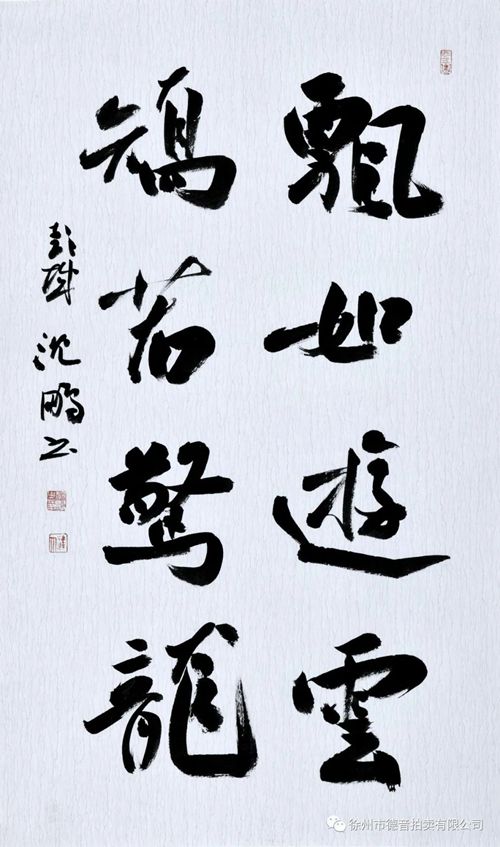 飄如遊雲
矯若驚龍
彭城沈鵬书
徐州市德音拍卖有限公司